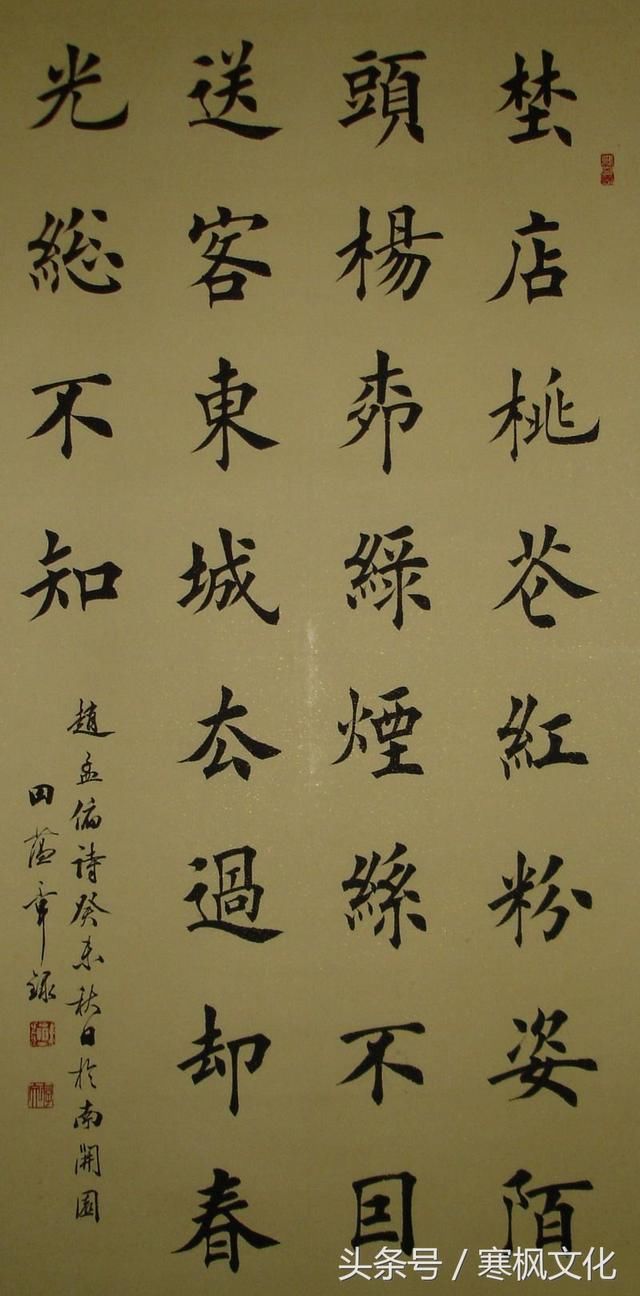 埜店桃花紅粉姿陌
頭楊柳緑煙絲不回
送客東城去過却春
光総不知
趙孟俯詩癸未秋日於南開園
田蘊章録
头条号 / 寒枫文化